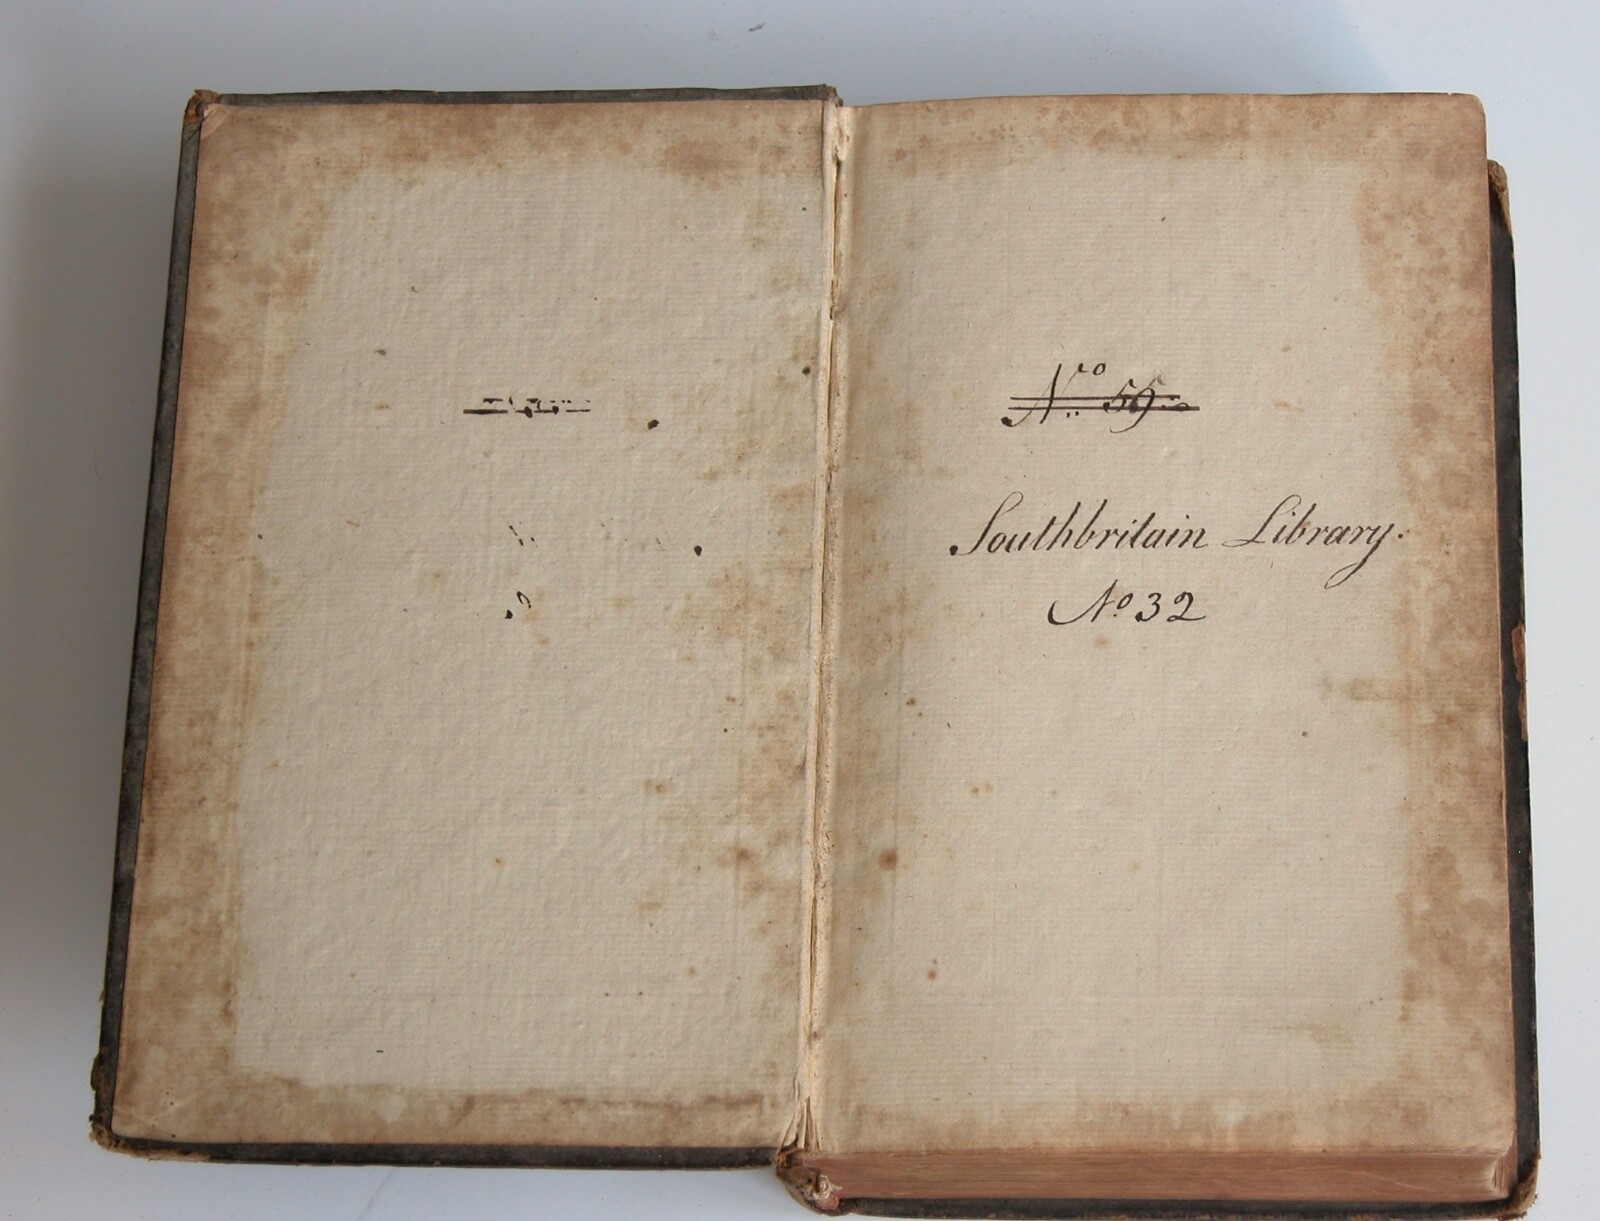 No 59
Southbritain Library.
No 32